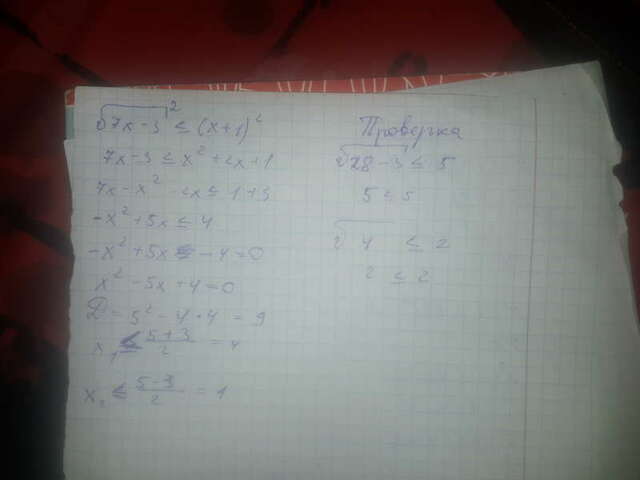 √7x-3² ≤ (x+1)²
7x-3 ≤ x²+2x+1
7x-x²-2x ≤ 1+3
-x²+5x ≤ 4
-x²+5x -4=0
x²-5x+4=0
D=5²-4·4=9
x₁ ≤ 5+3/2 = 4
x₂ ≤ 5-3/2 = 1
Проверка
√28-3 ≤ 5
5 ≤ 5
√4 ≤ 2
2 ≤ 2